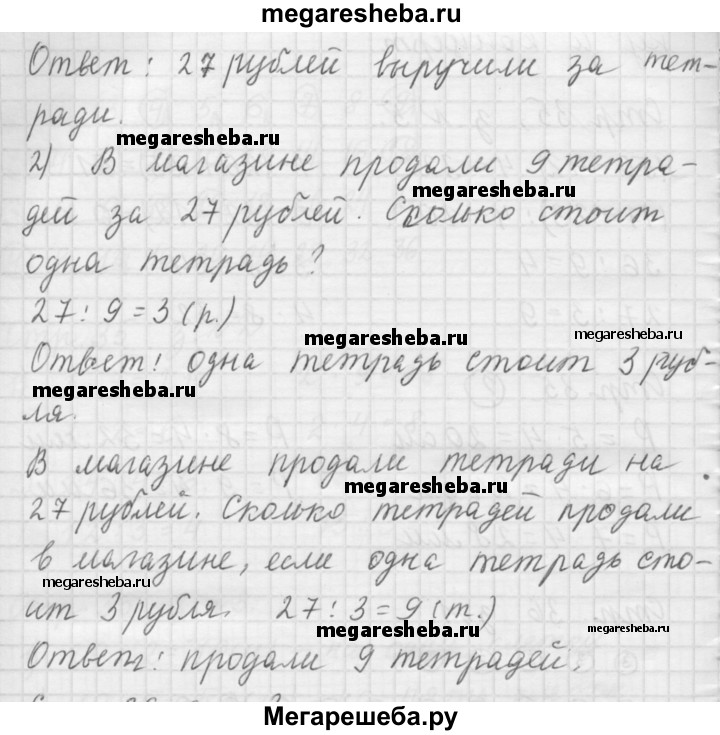 megaresheba.ru
Ответ: 27 рублей выручили за тет-
ради.
megaresheba.ru
2) В магазине продали 9 тетра-
megaresheba.ru
дей за 27 рублей. Сколько стоит
одна тетрадь?
27 : 9 = 3 (р.)
megaresheba.ru
megaresheba.ru
Ответ: одна тетрадь стоит 3 руб-
megaresheba.ru
ля.
В магазине продали тетради на
megaresheba.ru
27 рублей. Сколько тетрадей продали
в магазине, если одна тетрадь сто-
megaresheba.ru
ит 3 рубля. 27 : 3 = 9 (т.)
megaresheba.ru
megaresheba.ru
Ответ: продали 9 тетрадей.
Мегарешеба.ру